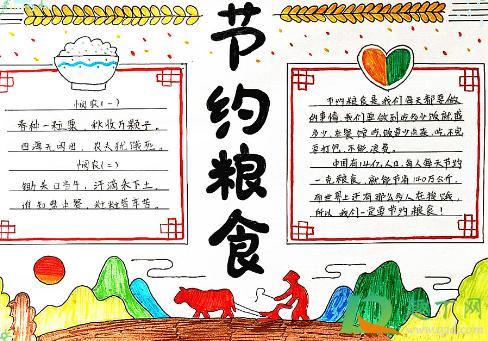 节约粮食
悯农(一)
春种一粒粟,秋收万颗子。
四海无闲田,农夫犹饿死。
悯农(二)
锄禾日当午,汗滴禾下土。
谁知盘中餐,粒粒皆辛苦。
节约粮食是我们每天都要做
的事情,我们要做到吃多少饭就盛
多少,在餐馆吃饭要少点菜,吃不完
要打包,不能浪费。
中国有14亿人口,每人每天节约
一克粮食,就能节省140万公斤,
而世界上还有那么多人在挨饿,
所以我们一定要节约粮食!